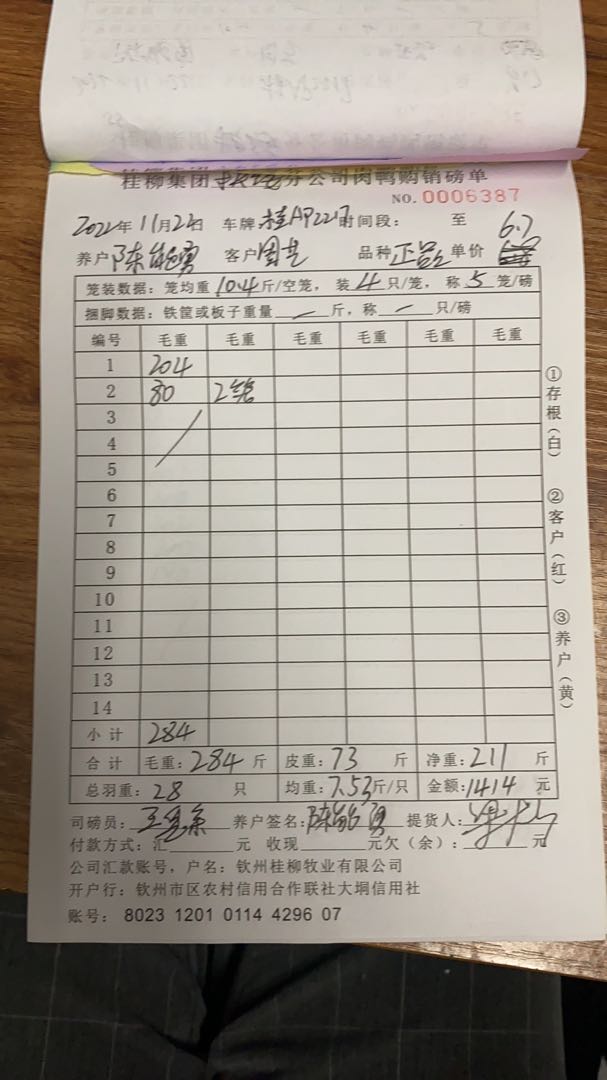 桂柳集团 分公司肉鸭购销磅单
NO. 0006387
2022年11月22日 车牌:桂AP22 时间段: 至
6.7
养户 陈能勇 客户 周 品种 正品 单价
笼装数据: 笼均重 10.4 斤/空笼, 装 4 只/笼, 称 5 笼/磅
捆脚数据: 铁筐或板子重量 — 斤, 称 — 只/磅
编号 毛重 毛重 毛重 毛重 毛重 毛重
1 204
2 80 2笼
3
4
5
6
7
8
9
10
11
12
13
14
小计 284
合计 毛重: 284 斤 皮重: 73 斤 净重: 211 斤
总羽重: 28 只 均重: 7.53 斤/只 金额: 1414 元
司磅员: 养户签名: 陈能勇 提货人:
付款方式: 汇 元 收现 元欠(余): 元
公司汇款账号, 户名: 钦州桂柳牧业有限公司
开户行: 钦州市区农村信用合作联社大垌信用社
账号: 8023 1201 0114 4296 07
①存根(白)
②客户(红)
③养户(黄)